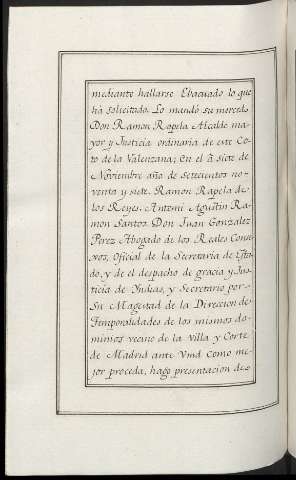 mediante hallarse Evacuado lo que
há solicitado. Lo mandó su merced
Don Ramon Rapela Alcalde ma-
yor y Justicia ordinaria de este Co-
to de la Valenzana; En el á siete de
Noviembre año de setecientos no-
venta y siete. Ramon Rapela de
los Reyes. Antemi Agustin Ra-
mon Santos. Don Juan Gonzalez
Perez Abogado de los Reales Conse-
xos, Oficial de la Secretaria de Esta-
do, y de el despacho de gracia y Jus-
ticia de Yndias, y Secretario por
Su Magestad de la Direccion de
Temporalidades de los mismos do-
minios vecino de la Villa y Corte
de Madrid ante Vmd como me-
jor proceda, hago presentacion de